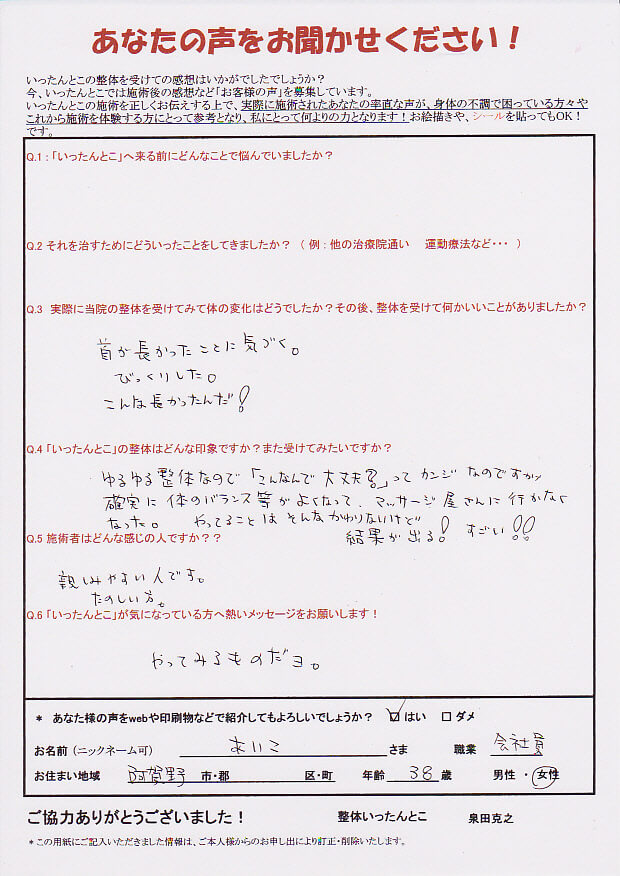 あなたの声をお聞かせください！
いったんとこの整体を受けての感想はいかがでしたでしょうか？
今、いったんとこでは施術後の感想など「お客様の声」を募集しています。
いったんとこの施術を正しくお伝えする上で、実際に施術されたあなたの率直な声が、身体の不調で困っている方々や
これから施術を体験する方にとって参考となり、私にとって何よりの力となります！お絵描きや、シールを貼ってもOK！
です。
Q.1：「いったんとこ」へ来る前にどんなことで悩んでいましたか？
Q.2 それを治すためにどういったことをしてきましたか？ （ 例：他の治療院通い　運動療法など・・・ ）
Q.3 実際に当院の整体を受けてみて体の変化はどうでしたか？その後、整体を受けて何かいいことがありましたか？
首が長かったことに気づく。
びっくりした。
こんな長かったんだ！
Q.4 「いったんとこ」の整体はどんな印象ですか？また受けてみたいですか？
ゆるゆる整体なので「こんなんで大丈夫？」ってカンジなのですが
確実に体のバランス等がよくなって、マッサージ屋さんに行かなく
なった。 やってることはそんなかわりないけど
結果が出る！ すごい！！
Q.5 施術者はどんな感じの人ですか？？
親しみやすい人です。
たのしい方。
Q.6 「いったんとこ」が気になっている方へ熱いメッセージをお願いします！
やってみるものだヨ。
* あなた様の声をwebや印刷物などで紹介してもよろしいでしょうか？ ☑はい □ダメ
お名前（ニックネーム可） あいこ さま 職業 会社員
お住まい地域 阿賀野 市・郡 区・町 年齢 38 歳 男性 ・ 女性
ご協力ありがとうございました！ 整体いったんとこ 泉田克之
* この用紙にご記入いただきました情報は、ご本人様からのお申し出により訂正・削除いたします。